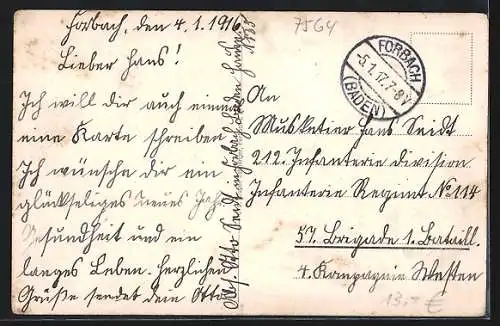 Forbach, den 4.1.1916
Lieber Hans!
Ich will dir auch einmal
eine Karte schreiben
Ich wünsche dir ein
glückseliges Neues Jahr
Gesundheit und ein
langes Leben. Herzlichen
Grüße sendet dem Otto
Otto Seidt Forbach Baden
7564
FORBACH
-5.1.17.7-8V
(BADEN)
An
Musketier Hans Seidt
212. Infanterie division
Infanterie Regimt No 114
57. Brigade 1. Bataill.
4. Kompagnie Westen
13.- €